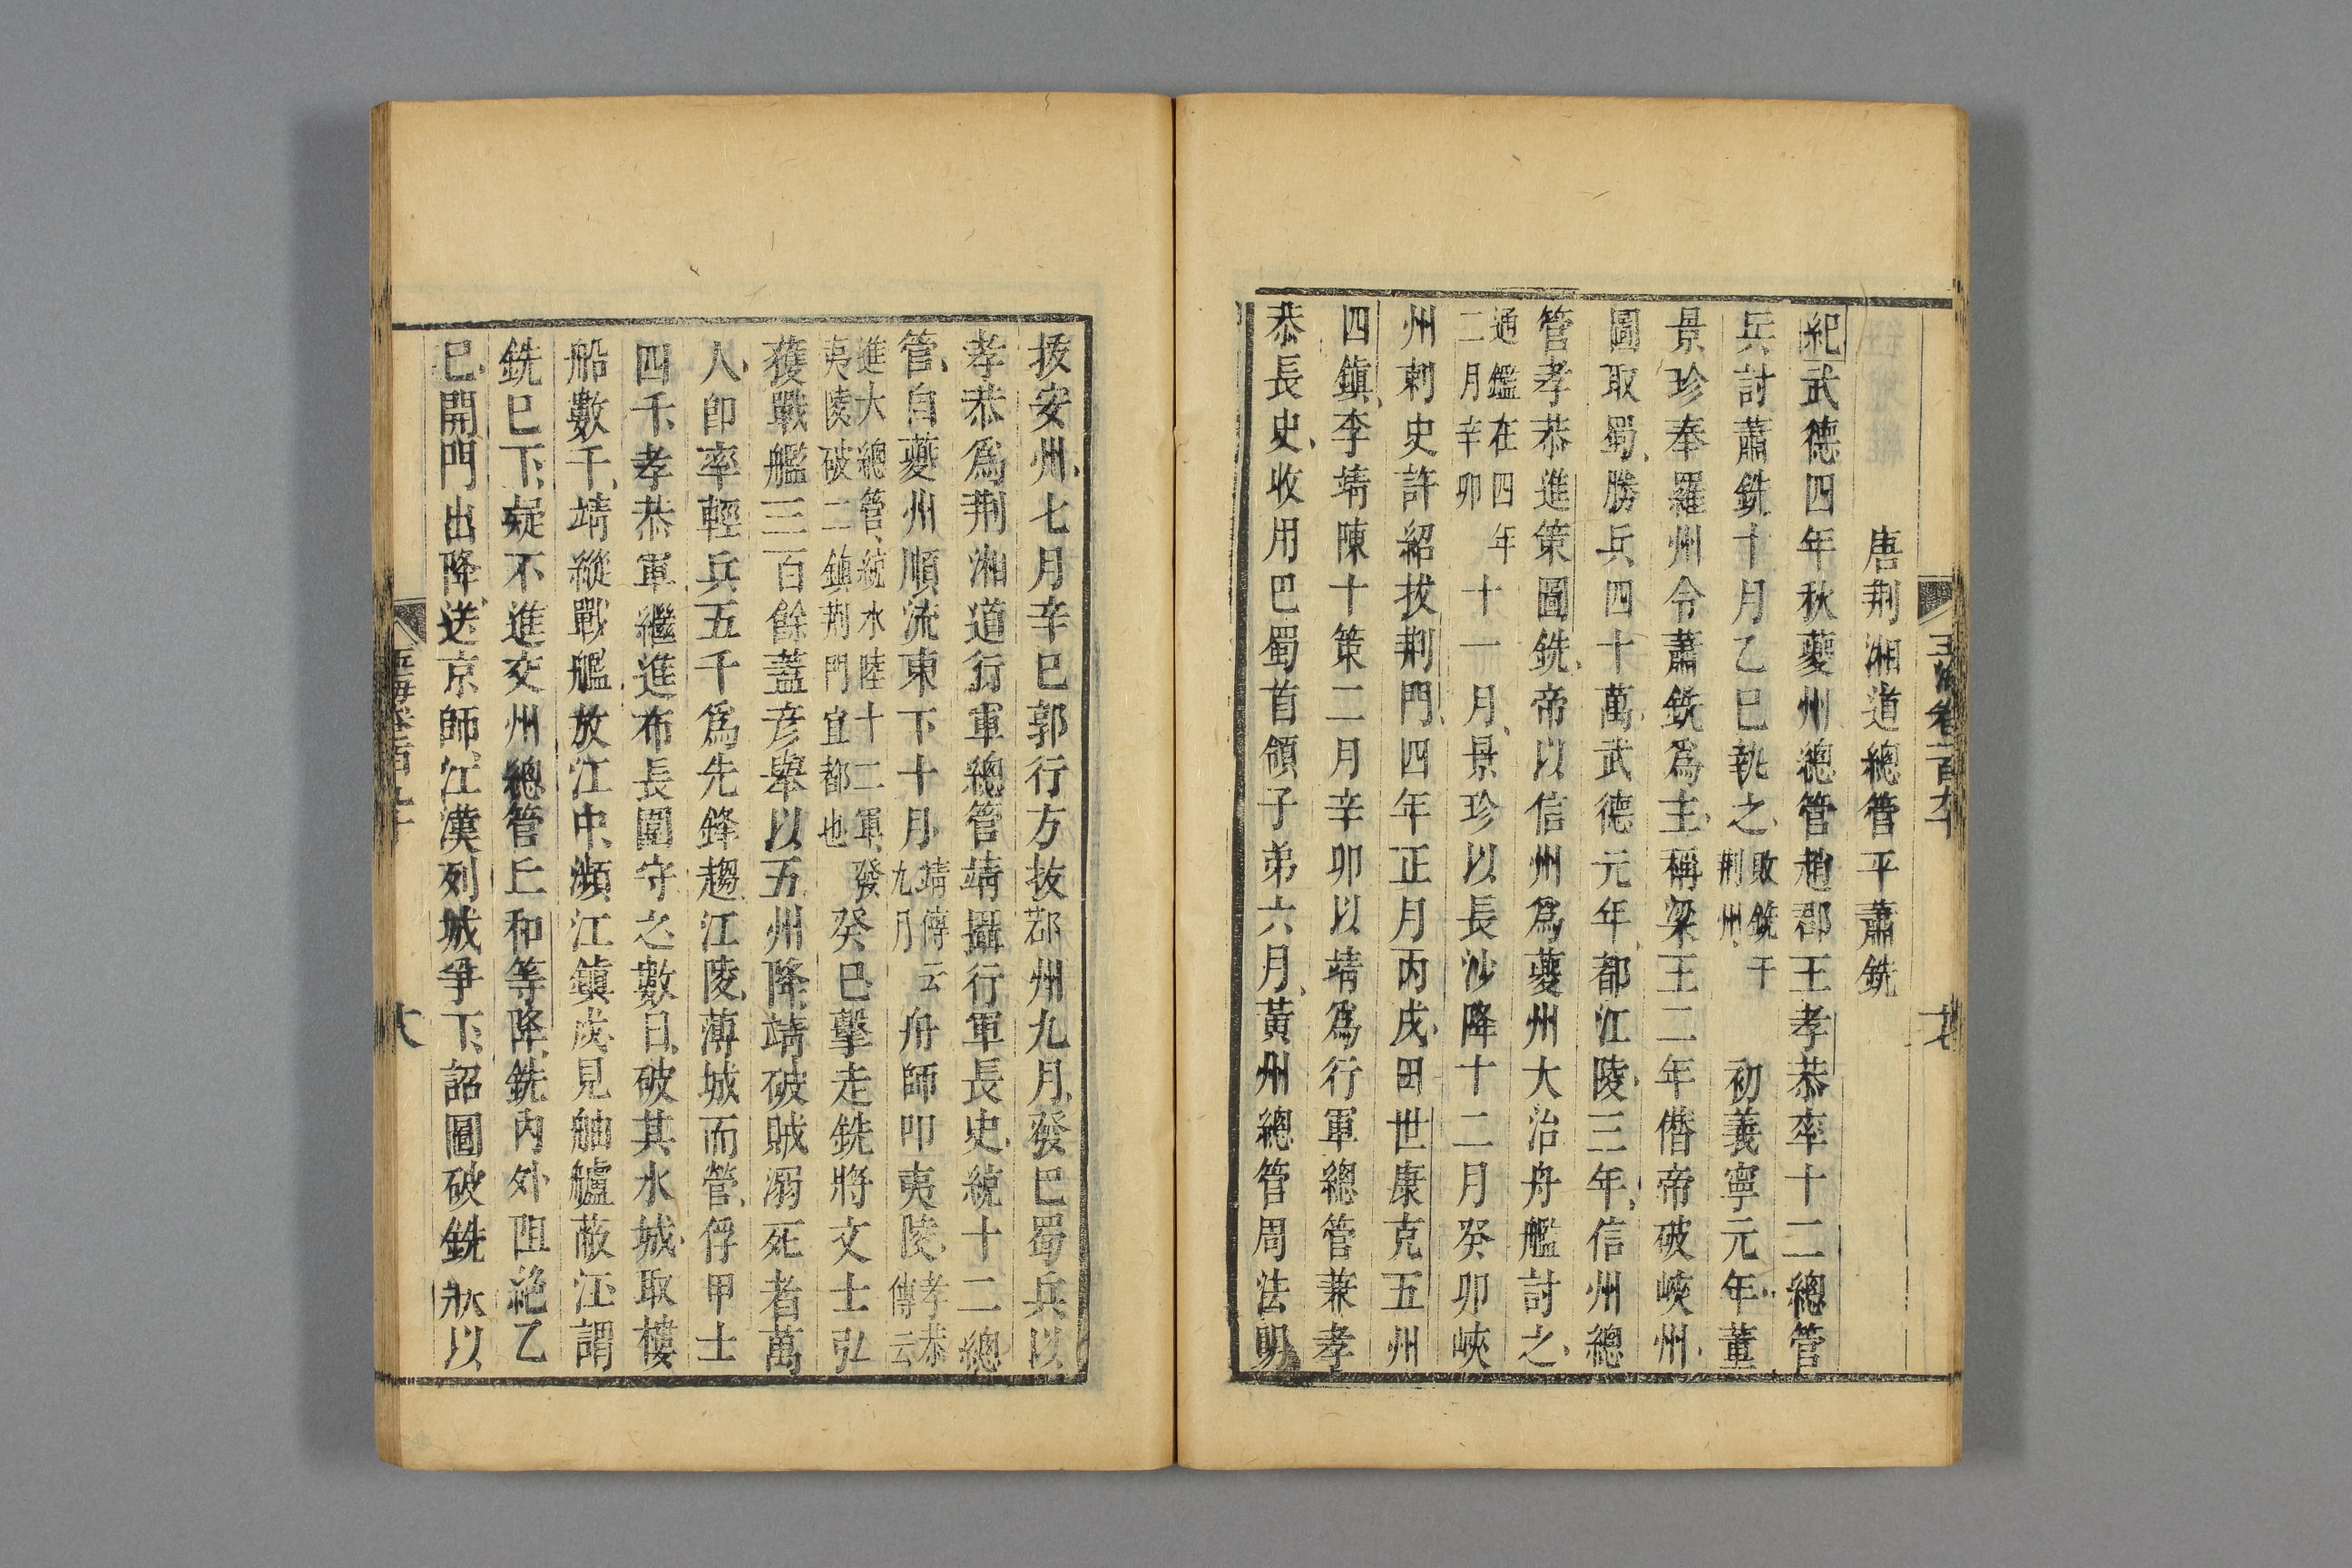 唐荆湘道總管平蕭銑
紀武德四年秋夔州總管趙郡王孝恭率十二總管
兵討蕭銑十月乙巳執之敗銑于荆州初義寧元年董
景珍奉羅州令蕭銑爲主稱梁王二年僭帝破峽州
圖取蜀勝兵四十萬武德元年都江陵三年信州總
管孝恭進策圖銑帝以信州爲夔州大治舟艦討之
通鑑在四年二月辛卯十一月景珍以長沙降十二月癸卯峽
州刺史許紹拔荆門四年正月丙戌田世康克五州
四鎮李靖陳十策二月辛卯以靖爲行軍總管兼孝
恭長史收用巴蜀首領子弟六月黃州總管周法明
拔安州七月辛巳郭行方拔鄀州九月發巴蜀兵以
孝恭爲荆湘道行軍總管靖攝行軍長史統十二總
管自夔州順流東下十月靖傳云九月舟師叩夷陵孝恭傳云
進大總管統水陸十二軍發夷陵破二鎮荆門宜都也癸巳擊走銑將文士弘
獲戰艦三百餘蓋彦舉以五州降靖破賊溺死者萬
人即率輕兵五千爲先鋒趨江陵薄城而營俘甲士
四千孝恭軍繼進布長圍守之數日破其水城取樓
船數千靖縱戰艦放江中瀕江鎮戍見舳艫蔽江謂
銑巳下疑不進交州總管丘和等降銑内外阻絶乙
巳開門出降送京師江漢列城爭下詔圖破銑狀以